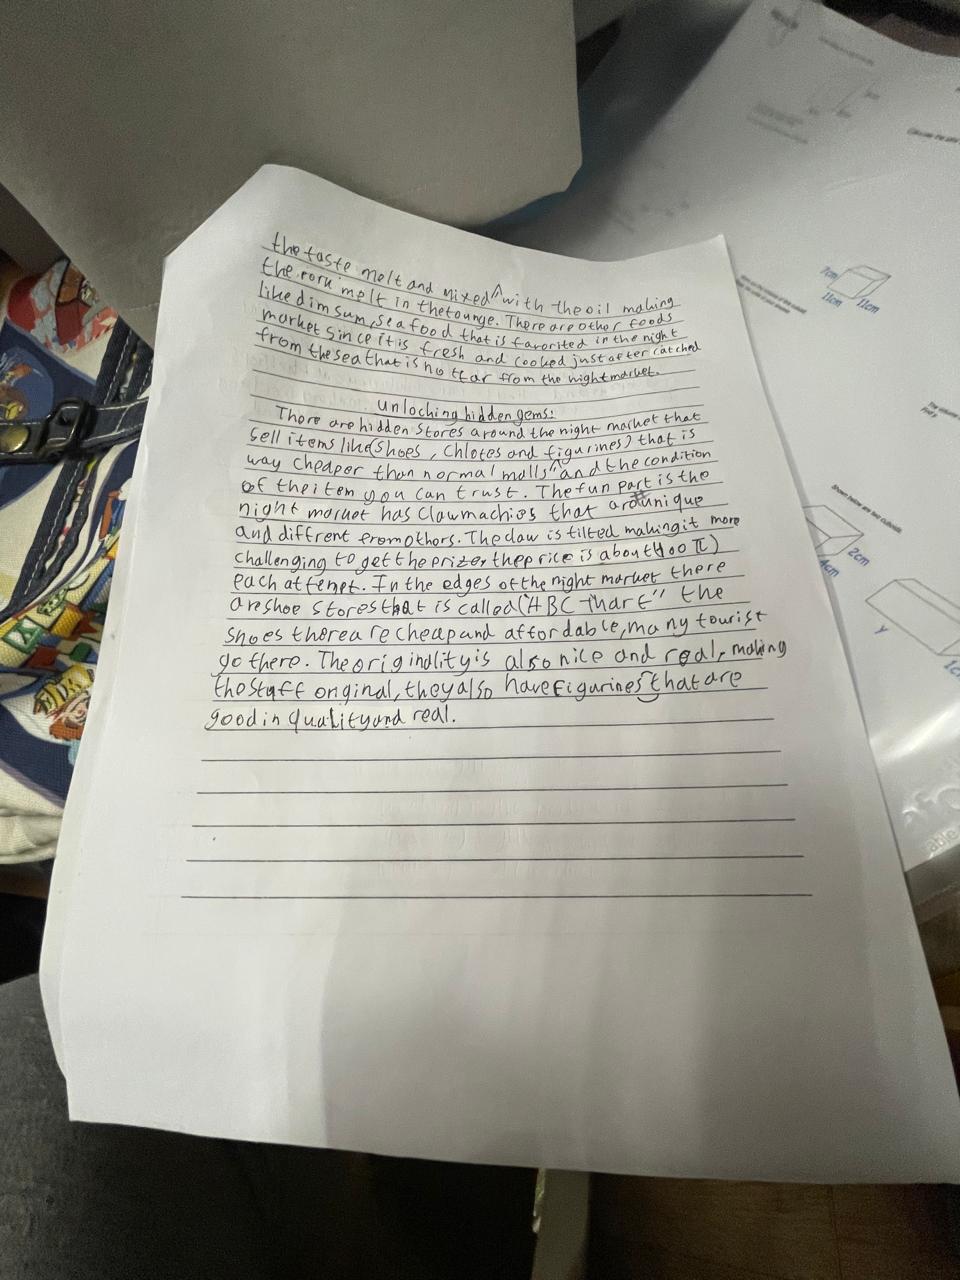 the taste melt and mixed ^ with the oil making
the porn melt in thetounge. There are other foods
like dim sum, seafood that is favorited in the night
market since it is fresh and cooked just after catched
from the sea that is not far from the night market.
unloching hidden gems:
There are hidden stores around the night market that
sell items like (shoes, Chlotes and figurines) that is
way cheaper than normal malls" and the condition
of the item you can trust. The fun part is the
night market has Clawmachies that are unique
and diffrent from others. The claw is tilted making it more
challenging to get the prize, the price is about (400元)
each attempt. In the edges of the night market there
are shoe stores that is called ("ABC-Mart" the
shoes there are cheap and affordable, many tourist
go there. The originality is also nice and real, making
the stuff original, they also have figurines that are
good in quality and real.
7cm
11cm
11cm
Shown below are two cuboids.
2cm
4cm
y